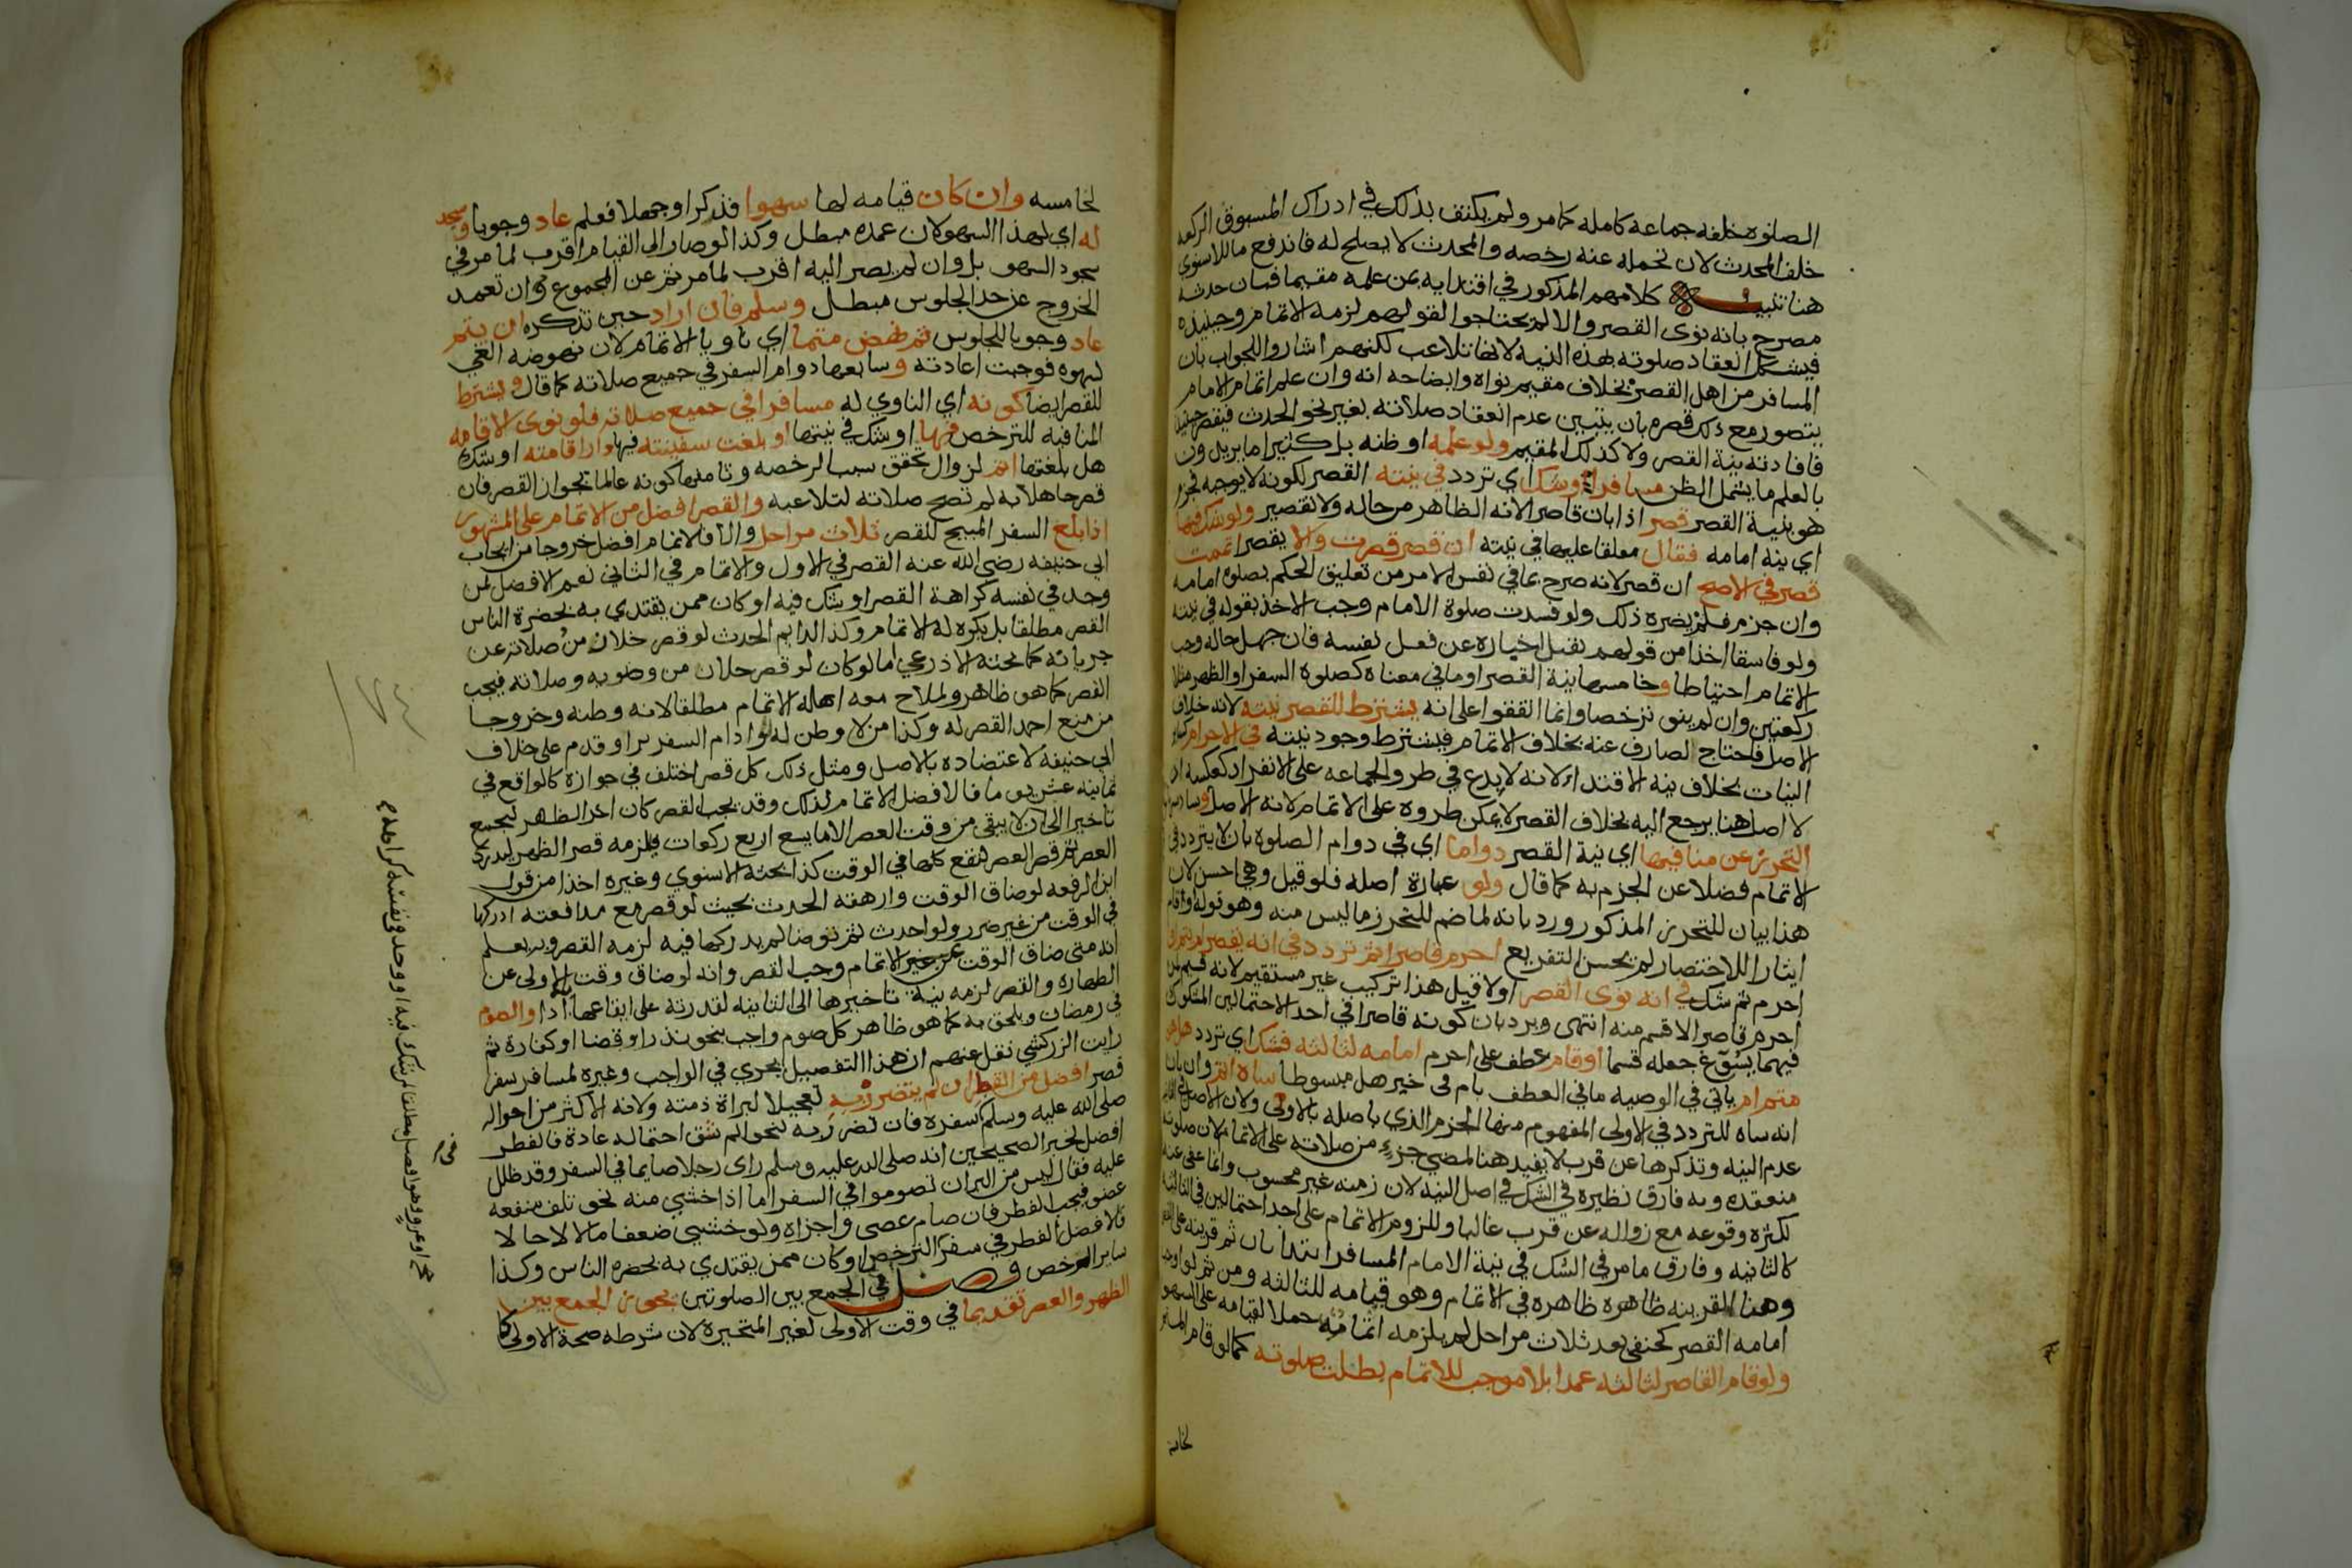 الصلوة خلفه جماعة كاملة كما مر ولم يكتف بذلك في ادراك المسبوق الركعة
خلف المحدث لان تحمله عنه رخصه والمحدث لا يصلح له فاندفع ما للاسنوي
هنا تنبيه كلامهم المذكور في اقتدايه بمن علمه مقيما فبان حدثه
مصرح بانه نوى القصر والا لم يحتاجوا لقولهم لزمه الاتمام وحينيذ
فيشكل انعقاد صلوته بهذه النية لانها تلاعب لكنهم اشاروا للجواب بان
المسافر من اهل القصر بخلاف مقيم نواه وايضاحه انه وان علم اتمام الامام
يتصور مع ذلك قصره بان يتبين عدم انعقاد صلاته بغير نحو الحدث فيقصر حينيذ
فافادته نية القصر ولا كذلك المقيم ولو علمه او ظنه بل كثيرا ما يريدون
بالعلم ما يشمل الظن مسافرا وشك اي تردد في نيته القصر لكونه لا يوجبه فجزم
هو بنية القصر قصر اذا بان قاصرا لانه الظاهر من حاله ولا تقصير ولو شك فيها
اي نية امامه فقال معلقا عليها في نيته ان قصر قصرت والا يقصر اتممت
قصر في الاصح ان قصر لانه صرح بما في نفس الامر من تعليق الحكم بصلوة امامه
وان جزم فلم يضره ذلك ولو فسدت صلوة الامام وجب الاخذ بقوله في نيته
ولو فاسقا اخذا من قولهم تقبل اخباره عن فعل نفسه فان جهل حاله وجب
الاتمام احتياطا وخامسها نية القصر او ما في معناه كصلوة السفر او الظهر مثلا
ركعتين وان لم ينو ترخصا وانما اتفقوا على انه يشترط للقصر نيته لانه خلاف
الاصل فاحتاج لصارف عنه بخلاف الاتمام فيشترط وجود نيته في الاحرام كساير
النيات بخلاف نية الاقتداء لانه لا بدع في طرو الجماعه على الانفراد كعكسه اذ
لا اصل هنا يرجع اليه بخلاف القصر لا يمكن طروه على الاتمام لانه الاصل وسادسها
التحرز عن منافيها اي نية القصر دواما اي في دوام الصلوة بان لا يتردد في
الاتمام فضلا عن الجزم به كما قال ولو عبارة اصله فلو قيل وهي احسن لان
هذا بيان للتحرز المذكور ورد بانه لما ضم للتحرز ما ليس منه وهو قوله ولو قام
ايثارا للاختصار لم يحسن التفريع احرم قاصرا ثم تردد في انه يقصر ام يتم او
احرم ثم شك في انه نوى القصر او لا قيل هذا تركيب غير مستقيم لانه قسيم لمن
احرم قاصرا لا قسم منه انتهى ويرد بان كونه قاصرا في احد الاحتمالين المشكوك
فيهما يسوغ جعله قسما او قام عطف على احرم امامه لثالثه فشك اي تردد هل هو
متم ام ياتي في الوصية ما في العطف بام في خبر هل مبسوطا ساه اتم وان بان
انه ساه للتردد في الاولى المفهوم منها الجزم الذي باصله بالاولى ولان الاصل في الثانيه
عدم النية وتذكرها عن قرب لا يفيد هنا لمضي جزء من صلاته على الاتمام لان صلوته
منعقده وبه فارق نظيره في الشك في اصل النيه لان زمنه غير محسوب وانما عفى عنه
لكثرة وقوعه مع زواله عن قرب غالبا وللزوم الاتمام على احد احتمالين في الثالثة
كالثانيه وفارق ما مر في الشك في نية الامام المسافر ابتدا بان ثم قرينه على القصر
وهنا القرينه ظاهره ظاهره في الاتمام وهو قيامه للثالثه ومن ثم لو اوجب
امامه القصر كحنفي بعد ثلاث مراحل لم يلزمه اتمامه حملا لقيامه على السهو
ولو قام القاصر لثالثه عمدا بلا موجب للاتمام بطلت صلوته كما لو قام المتم
لخامسه
لخامسه وان كان قيامه لها سهوا فذكر او جهلا فعلم عاد وجوبا وسجد
له اي لهذا السهو لان عمده مبطل وكذا لو صار الى القيام اقرب لما مر في
سجود السهو بل وان لم يصر اليه اقرب لما مر ثم عن المجموع وان تعمد
الخروج عن حد الجلوس مبطل وسلم فان اراد حين تذكره ان يتم
عاد وجوبا للجلوس ثم نهض متما اي ناويا الاتمام لان نهوضه الغي
لسهوه فوجبت اعادته وسابعها دوام السفر في جميع صلاته كما قال ويشترط
للقصر ايضا كونه اي الناوي له مسافرا في جميع صلاته فلو نوى الاقامه
المنافيه للترخص فيها او شك في نيتها او بلغت سفينته فيها دار اقامته او شك
هل بلغتها اتم لزوال تحقق سبب الرخصه وثامنها كونه عالما بجواز القصر فان
قصر جاهلا به لم تصح صلاته لتلاعبه والقصر افضل من الاتمام على المشهور
اذا بلغ السفر المبيح للقصر ثلاث مراحل والا فالاتمام افضل خروجا من ايجاب
ابي حنيفه رضي الله عنه القصر في الاول والاتمام في الثاني نعم الافضل لمن
وجد في نفسه كراهة القصر او شك فيه او كان ممن يقتدي به بحضرة الناس
القصر مطلقا بل يكره له الاتمام وكذا لدايم الحدث لو قصر خلا زمن صلاته عن
جريانه كما بحثه الاذرعي اما لو كان لو قصر خلا زمن وضويه وصلاته فيجب
القصر كما هو ظاهر ولملاح معه اهله الاتمام مطلقا لانه وطنه وخروجا
من منع احمد القصر له وكذا من لا وطن له وادام السفر برا وقدم على خلاف
ابي حنيفة لاعتضاده بالاصل ومثل ذلك كل قصر اختلف في جوازه كالواقع في
ثمانية عشر يوما فالافضل الاتمام لذلك وقد يجب القصر كان اخر الظهر ليجمع
تاخيرا الى ان لا يبقى من وقت العصر الا ما يسع اربع ركعات فيلزمه قصر الظهر ليدرك
العصر ثم قصر العصر لتقع كلها في الوقت كذا بحثه الاسنوي وغيره اخذا من قول
ابن الرفعه لو ضاق الوقت وارهقه الحدث بحيث لو قصر مع مدافعته ادركها
في الوقت من غير ضرر ولو احدث ثم توضا لم يدركها فيه لزمه القصر وبه يعلم
انه متى ضاق الوقت عن الاتمام وجب القصر وانه لو ضاق وقت الاولى عن
الطهاره والقصر لزمه نية تاخيرها الى الثانيه لقدرته على ايقاعها به ادا والصوم
في رمضان ويلحق به كما هو ظاهر كل صوم واجب بنحو نذر او قضا او كفارة ثم
رايت الزركشي نقل عنهم ان هذا التفصيل يجري في الواجب وغيره لمسافر سفر
قصر افضل من الفطر ان لم يتضرر به تعجيلا لبراة ذمته ولانه الاكثر من احواله
صلى الله عليه وسلم كسفره فان تضرر به لنحو الم شق احتماله عادة فالفطر
افضل لخبر الصحيحين انه صلى الله عليه وسلم راى رجلا صايما في السفر وقد ظلل
عليه فقال ليس من البر ان تصوموا في السفر اما اذا خشي منه نحو تلف منفعه
عضو فيجب الفطر فان صام عصى واجزاه ولو خشي ضعفا مالا لا حالا
فالافضل الفطر في سفر الترخص او كان ممن يقتدي به بحضرة الناس وكذا
ساير الرخص فصل في الجمع بين الصلوتين يجوز الجمع بين
الظهر والعصر تقديما في وقت الاولى لغير المتحيرة لان شرطه صحة الاولى